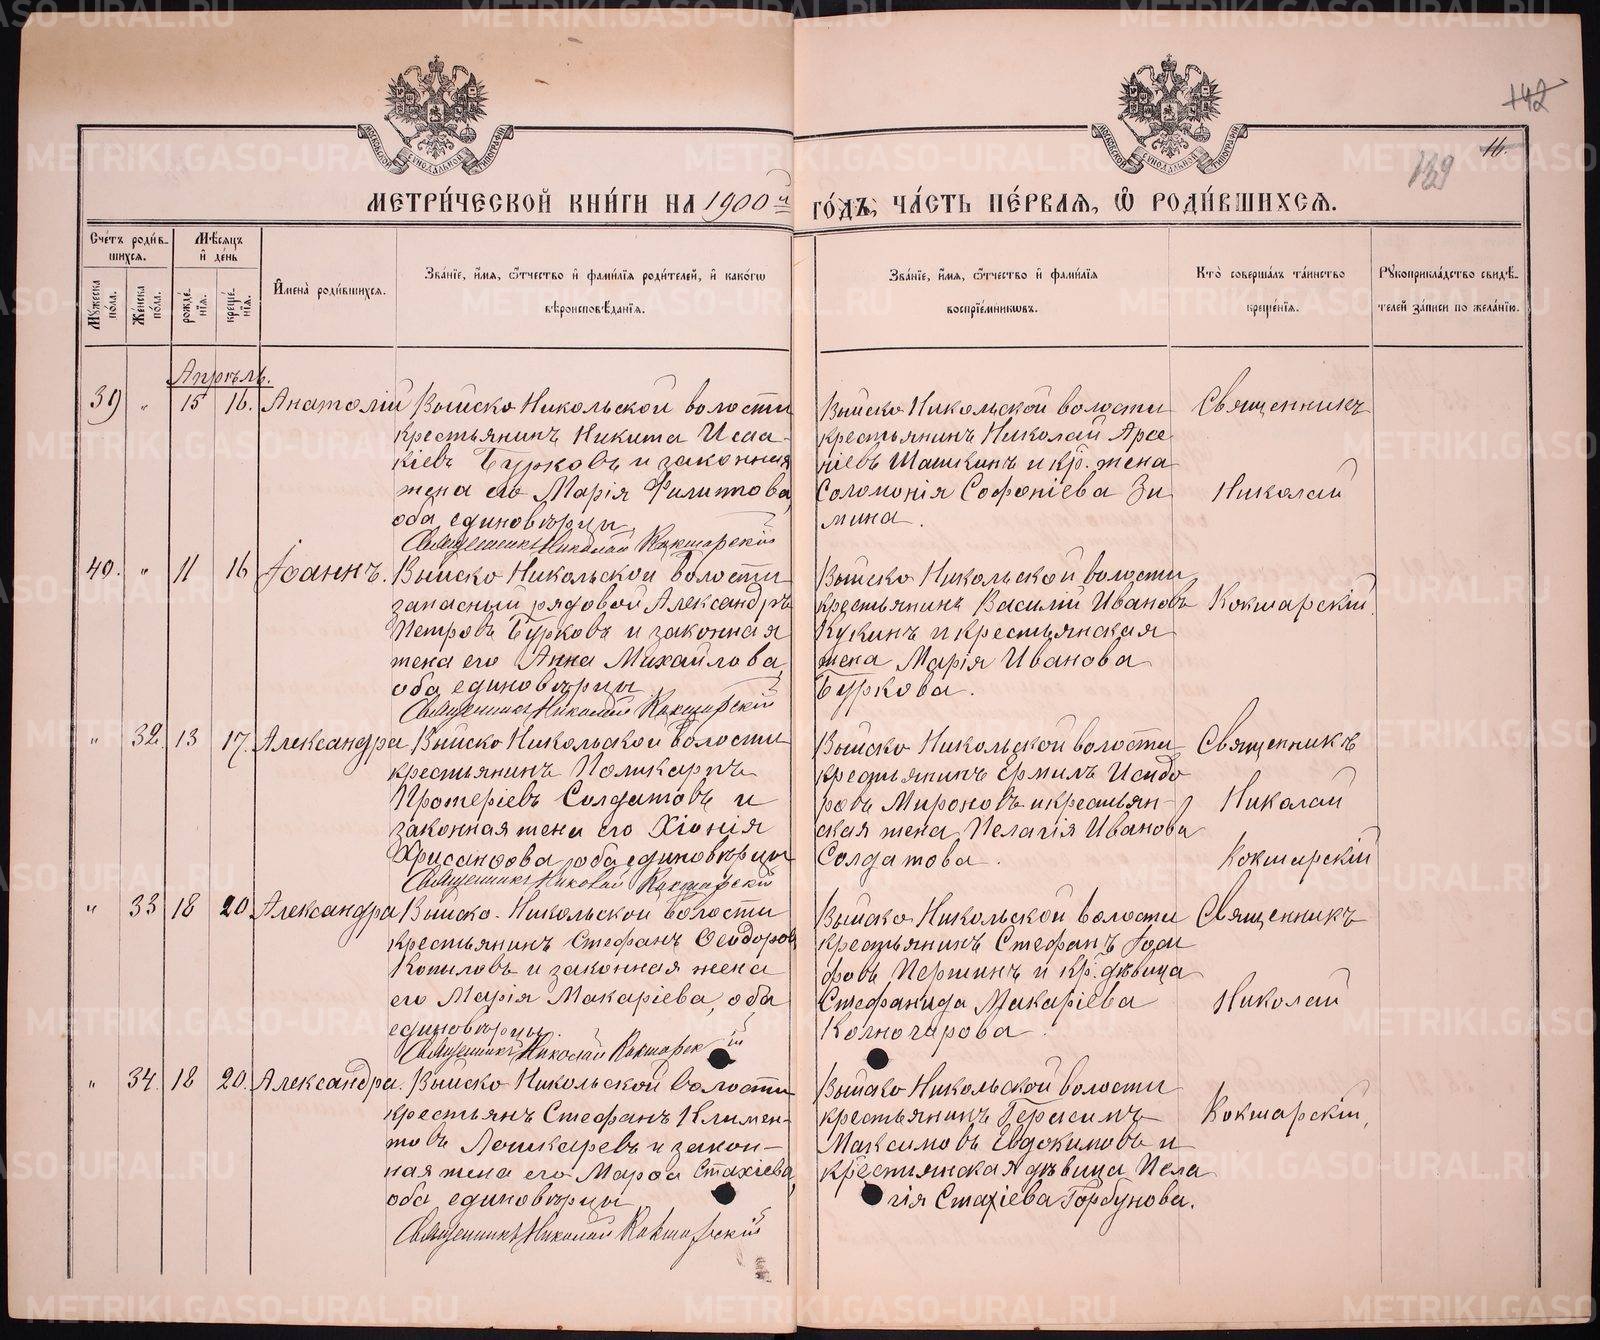 142
16.
139
МЕТРИ́ЧЕСКОЙ КНИ́ГИ НА 1900й ГО́ДЪ, ЧА́СТЬ ПЕ́РВАЯ, Ѿ РОДИ́ВШИХСЯ.
Сче́тъ роди́в-
шихся.
Мѣ́сяцъ
и҆ де́нь
Му́жеска по́ла.
Же́нска по́ла.
рожде́нїя.
креще́нїя.
И҆мена̀ роди́вшихся.
Зва́нїе, и҆́мя, ѻ҆́тчество и҆ фами́лїя роди́телей, и҆ како́гѡ
вѣроисповѣ́данїя.
Зва́нїе, и҆́мя, ѻ҆́тчество и҆ фами́лїя
воспрїе́мникѡвъ.
Кто̀ соверша́лъ та́инство
креще́нїя.
Рꙋкоприкла́дство свидѣ́-
телей за́писи по жела́нїю.
Апрѣль.
39 " 15 16. Анатолій
Выйско Никольской волости
крестьянинъ Никита Исаа-
кіевъ Бурковъ и законная
жена его Марія Филипова,
оба единовѣрцы.
Священникъ Николай Кокшарскій
Выйско Никольской волости
крестьянинъ Николай Арсе
ніевъ Шашкинъ и кр. жена
Соломонія Софоніева Зи
мина.
Священникъ
Николай
40. " 11 16 Іоаннъ.
Выйско Никольской волости
запасный рядовой Александръ
Петровъ Бурковъ и законная
жена его Анна Михайлова,
оба единовѣрцы.
Священникъ Николай Кокшарскій
Выйско Никольской волости
крестьянинъ Василій Ивановъ
Кукинъ и крестьянская
жена Марія Иванова
Буркова.
Кокшарскій.
" 32. 13 17. Александра
Выйско Никольской волости
крестьянинъ Поликарпъ
Протеріевъ Солдатовъ и
законная жена его Хіонія
Хрисанѳова, оба единовѣрцы
Священникъ Николай Кокшарскій
Выйско Никольской волости
крестьянинъ Ермилъ Исидо
ровъ Мироновъ и крестьян-
ская жена Пелагія Иванова
Солдатова.
Священникъ
Николай
Кокшарскій
" 33 18 20. Александра
Выйско-Никольской волости
крестьянинъ Стефанъ Ѳеодоровъ
Копыловъ и законная жена
его Марія Макаріева, оба
единовѣрцы.
Священникъ Николай Кокшарскій
Выйско Никольской волости
крестьянинъ Стефанъ Іоси
фовъ Першинъ и кр. дѣвица
Стефанида Макаріева
Колногорова.
Священникъ
Николай
" 34. 18 20. Александра.
Выйско Никольской волости
крестьянъ Стефанъ Климен-
товъ Лошкаревъ и закон-
ная жена его Марѳа Стахіева,
оба единовѣрцы
Священникъ Николай Кокшарскій
Выйско Никольской волости
крестьянинъ Герасимъ
Максимовъ Евдокимовъ и
крестьянская дѣвица Пела
гія Стахіева Горбунова.
Кокшарскій,